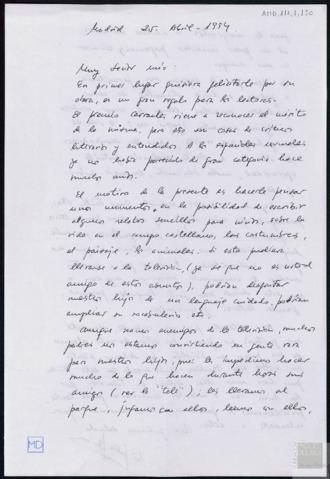 AMD,111,1,130
Madrid 25. Abril - 1994
Muy Señor mío:
En primer lugar quisiera felicitarle por su
obra, es un gran regalo para los lectores.
El premio Cervantes viene a reconocer el mérito
de la misma, pero eso son cosas de críticos
literarios y entendidos a los españoles normales
ya nos había parecido de gran categoría hace
muchos años.
El motivo de la presente es hacerle pensar
unos momentos, en la posibilidad de escribir
algunos relatos sencillos para niños, sobre la
vida en el campo castellano, las costumbres,
el paisaje, los animales. Si esto pudiera
llevarse a la televisión, (ya sé que no es usted
amigo de estos asuntos), podrían disfrutar
nuestros hijos de un lenguaje cuidado, podrían
ampliar su vocabulario etc.
Aunque no soy enemigo de la televisión, muchos
padres nos estamos convirtiendo en gente rara
para nuestros hijos, pues les impedimos hacer
mucho de lo que hacen durante horas sus
amigos (ver la "tele"), les llevamos al
parque, jugamos con ellos, leemos con ellos,
MD